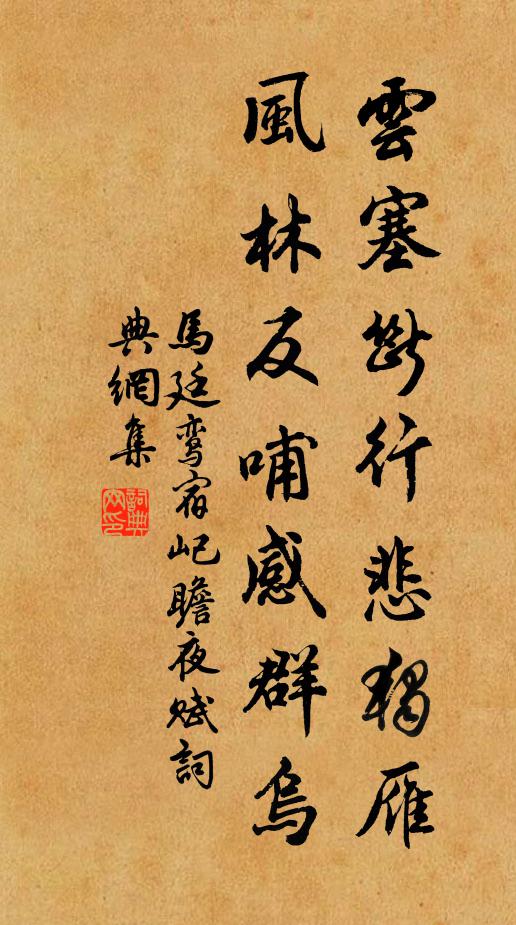 雲塞斷行悲獨雁
風林反哺感群烏
馬廷鸾宿屺瞻夜賦詞
典網集
詞典網印